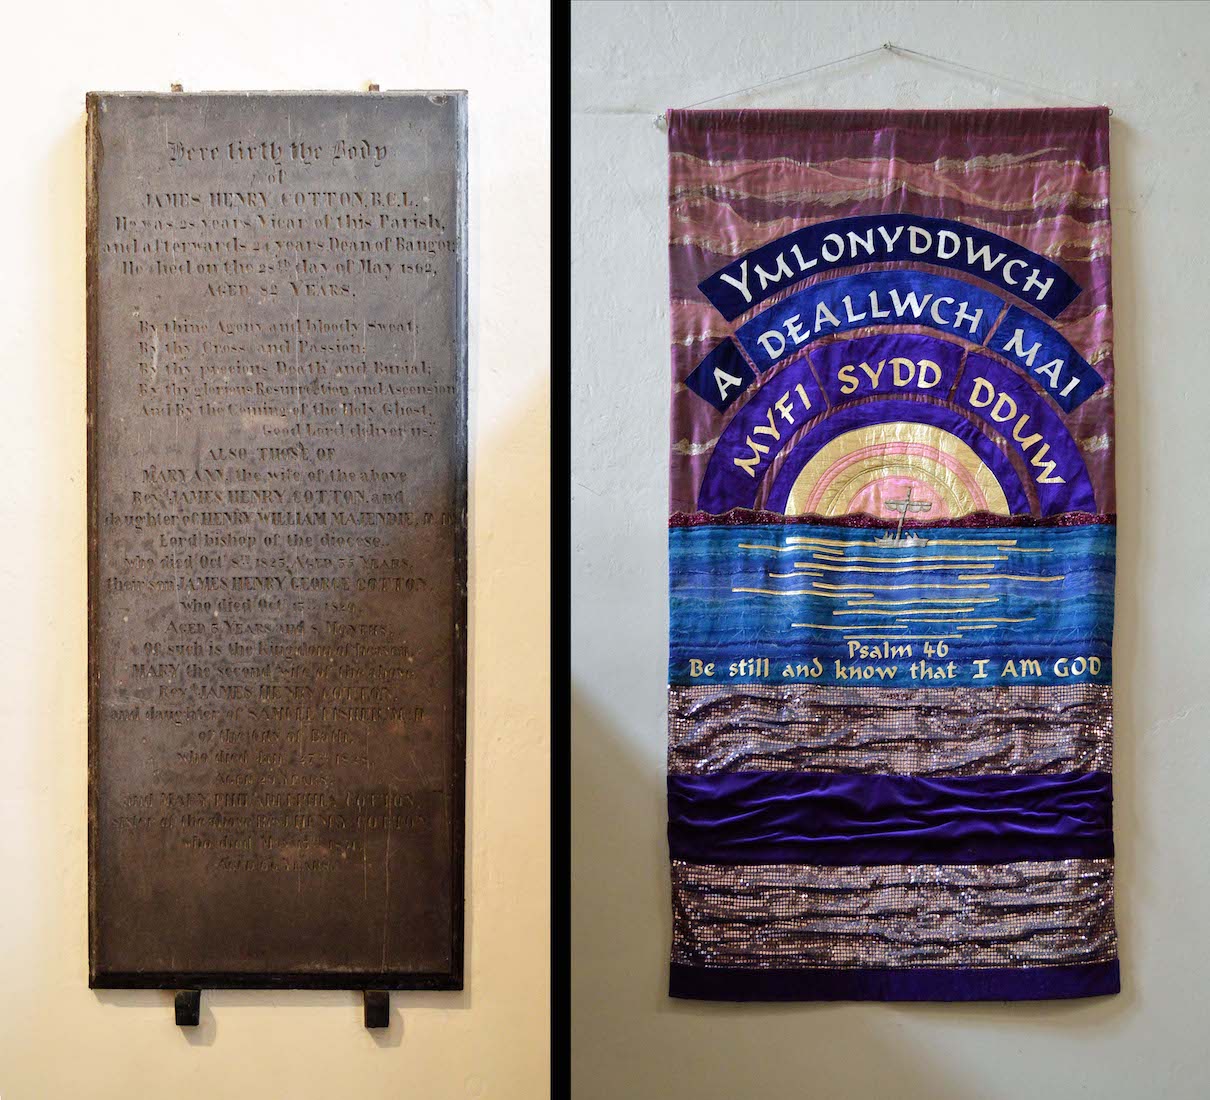 Here lieth the Body
of
JAMES HENRY COTTON, B.C.L.
He was 28 years Vicar of this Parish,
and afterwards 24 years Dean of Bangor,
He died on the 28th day of May 1862,
AGED 82 YEARS.
By thine Agony and bloody Sweat;
By thy Cross and Passion;
By thy precious Death and Burial;
By thy glorious Resurrection and Ascension
And By the Coming of the Holy Ghost,
Good Lord deliver us."
ALSO THOSE OF
MARY ANN, the wife of the above
Rev. JAMES HENRY COTTON, and
daughter of HENRY WILLIAM MAJENDIE, D.D.
Lord bishop of the diocese.
who died Octr 8th 1823, AGED 35 YEARS.
their son JAMES HENRY GEORGE COTTON
who died Oct 15th 1829,
AGED 5 YEARS and 8 MONTHS,
Of such is the Kingdom of heaven.
MARY the second wife of the above
Revd JAMES HENRY COTTON
and daughter of SAMUEL FISHER M.D.
of the City of Bath,
who died 1828,
AGED 29 YEARS.
and MARY PHILADELPHIA COTTON,
sister of the above Revd J HENRY COTTON
who died
AGED YEARS
YMLONYDDWCH
A DEALLWCH MAI
MYFI SYDD DDUW
Psalm 46
Be still and know that I AM GOD